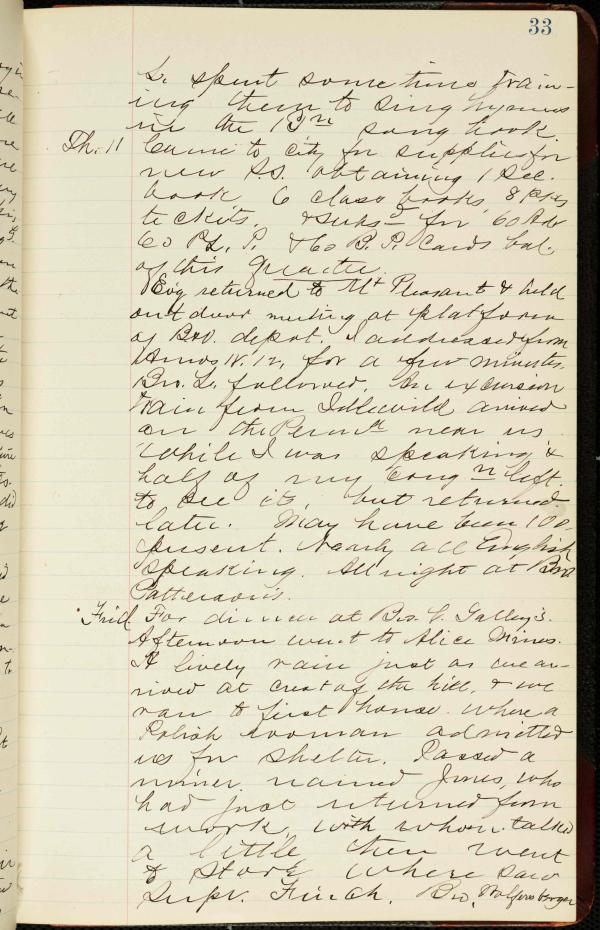 33
L. spent some time train-
ing them to sing hymns
in the 13n song book.
Th. 11 Came to city for supplies for
new S.S. obtaining 1 Sec.
book, 6 class books, 8 pkgs
tickets, & subs for 60
60 P.L. P. & 60 B. P. Cards bal.
of this Quarter.
Ev'g returned to Mt Pleasant & held
out door meeting at platform
of B&O. depot. I addressed from
Amos IV. 12, for a few minutes.
Bro. L. followed. An excursion
train from Idlewild arrived
on the Penna near us
while I was speaking &
half of my congn left
to see it, but returned
later. May have been 100
present. Nearly all English
speaking. All night at Bro.
Patterson's.
Frid. For dinner at Bro. C. Galley's.
Afternoon went to Alice Mines.
A lively rain just as we ar-
rived at crest of the hill, & we
ran to first house where a
Polish woman admitted
us for shelter. Passed a
miner named Jones, who
had just returned from
work, with whom talked
a little then went
to store where saw
Supr. Finch. Bro. Wolfersberger